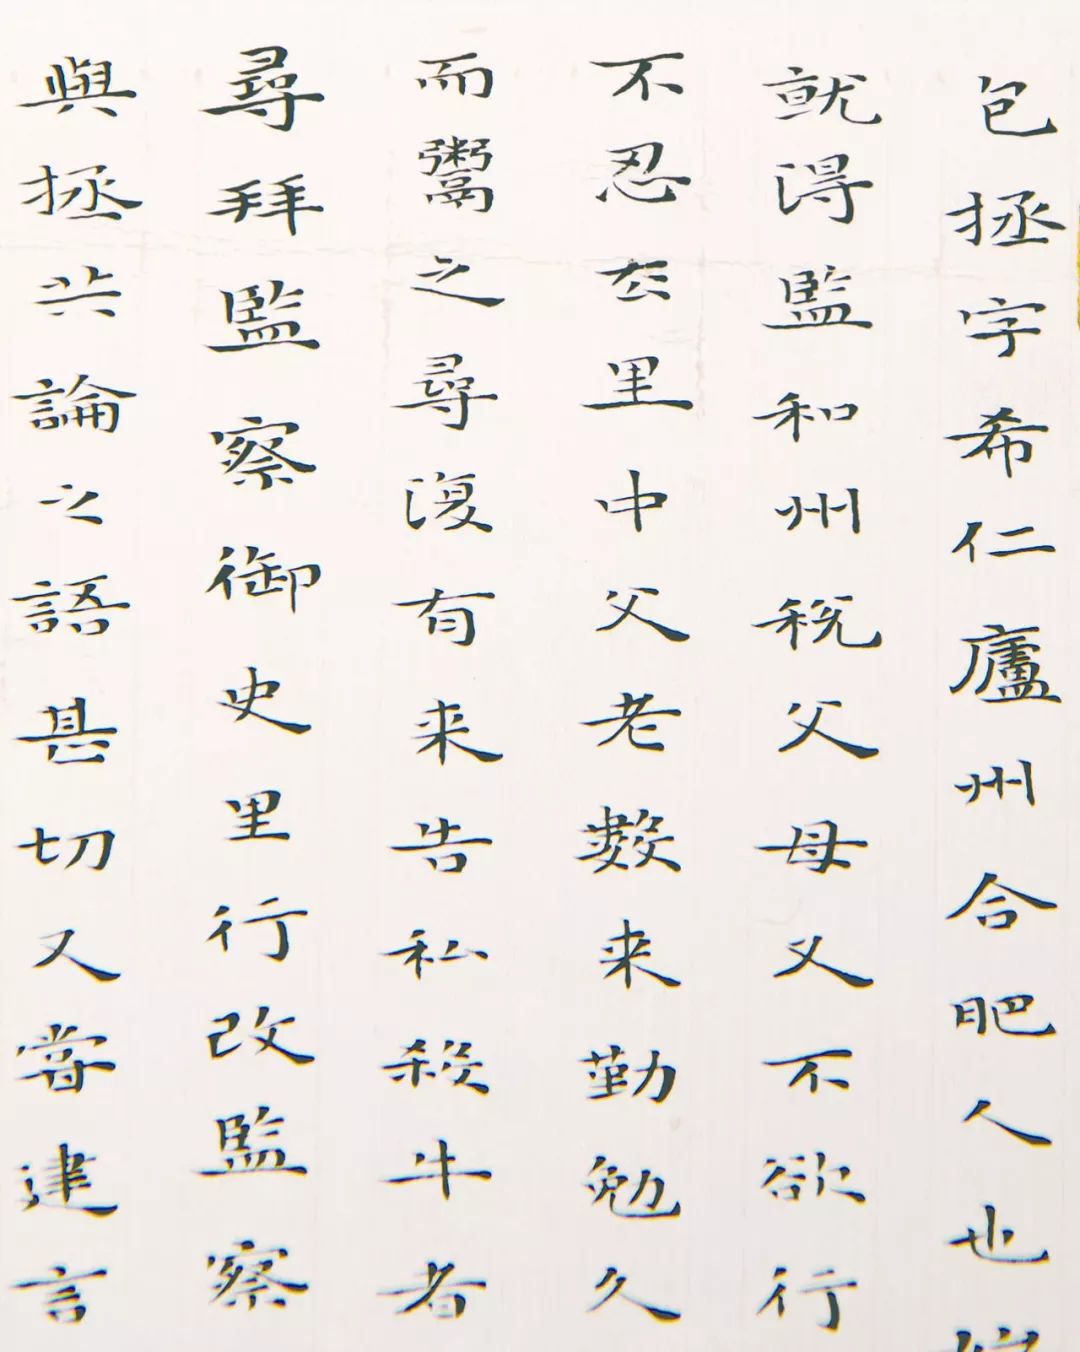 包拯字希仁廬州合肥人也
就得監和州稅父母又不欲行
不忍去里中父老數来勤勉久
而鬻之尋復有来告私殺牛者
尋拜監察御史里行改監察
與拯共論之語甚切又嘗建言